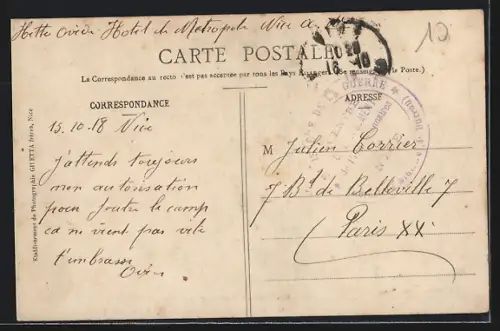 Hôtel de Métropole Nice
10
CARTE POSTALE
La Correspondance au recto n'est pas acceptée par tous les Pays Étrangers. (Se renseigner à la Poste.)
CORRESPONDANCE
15.10.18 Nice
J'attends toujours
mon autorisation
pour foutre le camp
ça ne vient pas vite
t'embrasse
Etablissement de Photographie GILETTA frères, Nice
GUERRE
ADRESSE
M Julien
7 Bd de Belleville 7
Paris XX